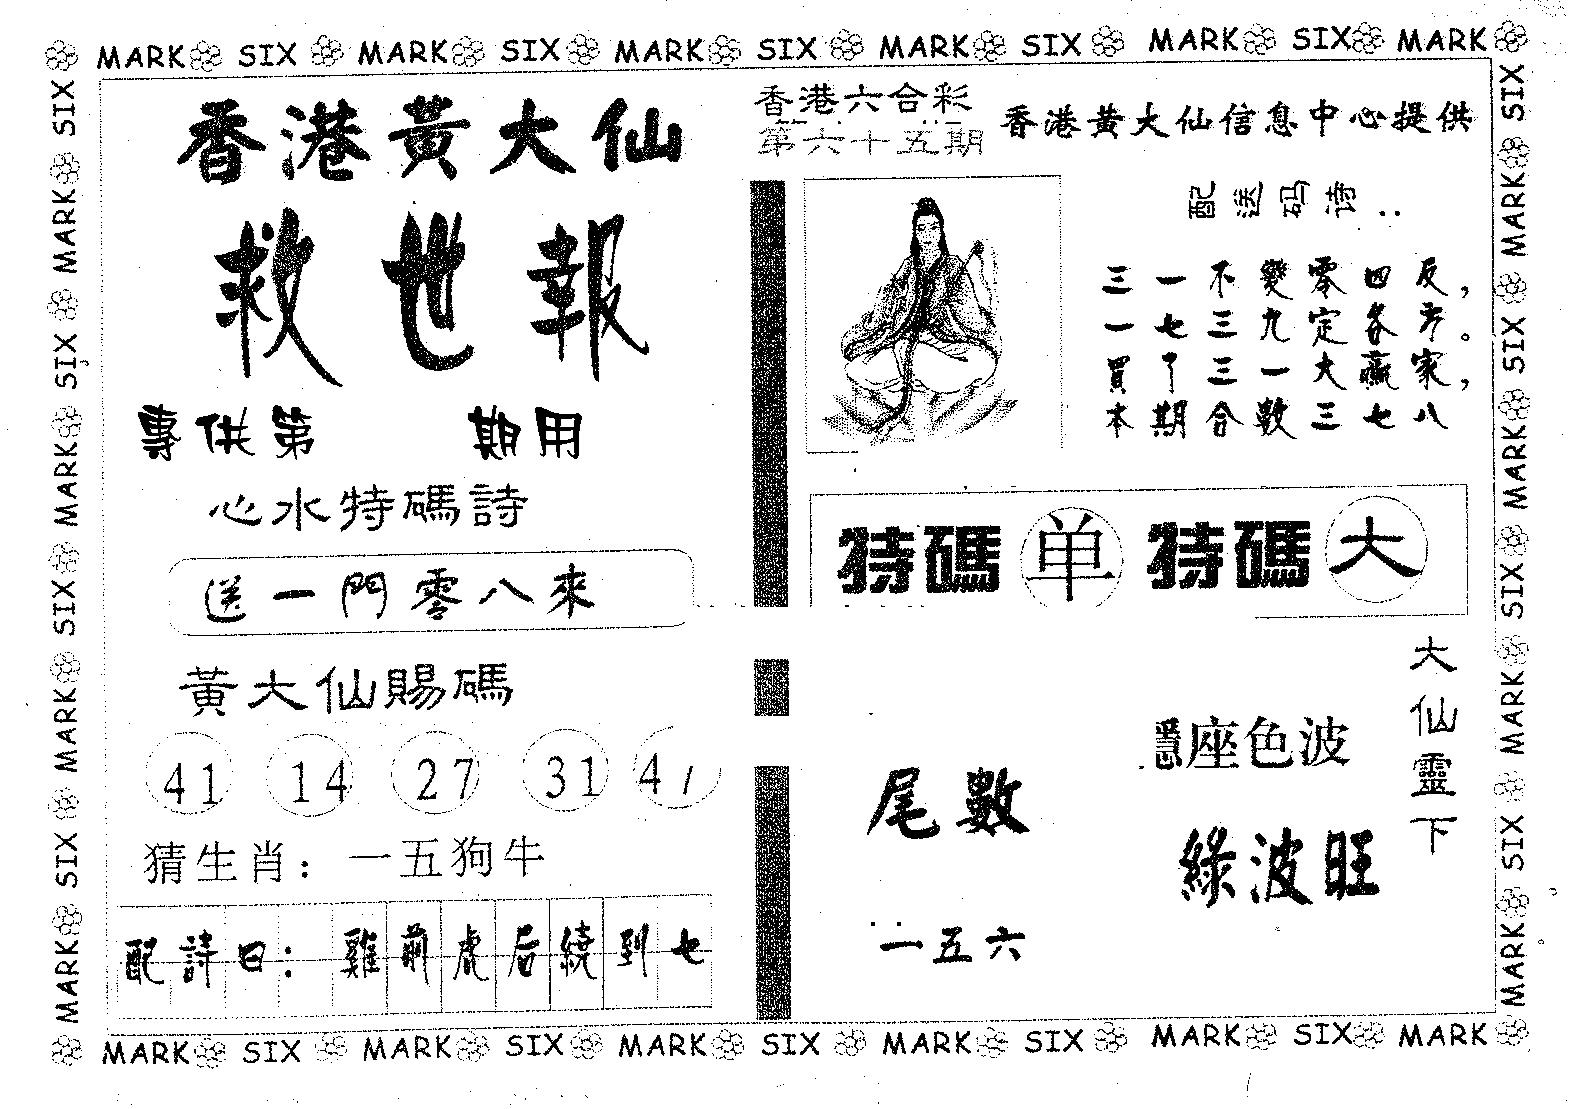 MARK SIX MARK SIX MARK SIX MARK SIX MARK SIX MARK
香港黃大仙
救世報
專供第 期用
心水特碼詩
送一門零八來
黃大仙賜碼
41 14 27 31 4
猜生肖：一五狗牛
配詩曰：雞前虎后繞到七
香港六合彩
第六十五期
香港黃大仙信息中心提供
配送码诗：
三一不變零四反，
一七三九定各方。
買了三一大贏家，
本期合數三七八
特碼 单 特碼 大
大仙靈下
座色波
綠波旺
尾數
一五六
MARK SIX MARK SIX MARK SIX MARK SIX
MARK SIX MARK SIX MARK SIX MARK SIX
MARK SIX MARK SIX MARK SIX MARK SIX MARK SIX MARK